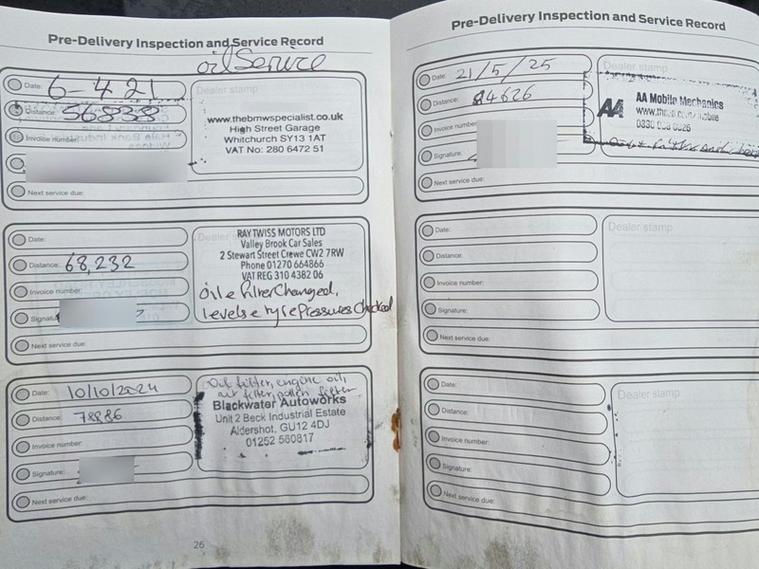 Pre-Delivery Inspection and Service Record
oil Service
Date: 6-4.21
Distance: 56838
Invoice number:
Next service due:
Dealer stamp
www.thebmwspecialist.co.uk
High Street Garage
Whitchurch SY13 1AT
VAT No: 280 6472 51
Date:
Distance: 68,232
Invoice number:
Signatu
Next service due:
Dealer
RAY TWISS MOTORS LTD
Valley Brook Car Sales
2 Stewart Street Crewe CW2 7RW
Phone 01270 664866
VAT REG 310 4382 06
Oil e filter Changed,
levels e tyre Pressures Checked
Date: 10/10/2024
Distance: 78886
Invoice number:
Signature:
Next service due:
Oil filter, engine oil,
air filter, pollen filter
Blackwater Autoworks
Unit 2 Beck Industrial Estate
Aldershot, GU12 4DJ
01252 560817
26
Pre-Delivery Inspection and Service Record
Date: 21/5/25
Distance: 84626
Invoice number
Signature:
Next service due:
Dealer stamp
AA
AA Mobile Mechanics
Date:
Distance:
Invoice number:
Signature:
Next service due:
Dealer stamp
Date:
Distance:
Invoice number:
Signature:
Next service due:
Dealer stamp